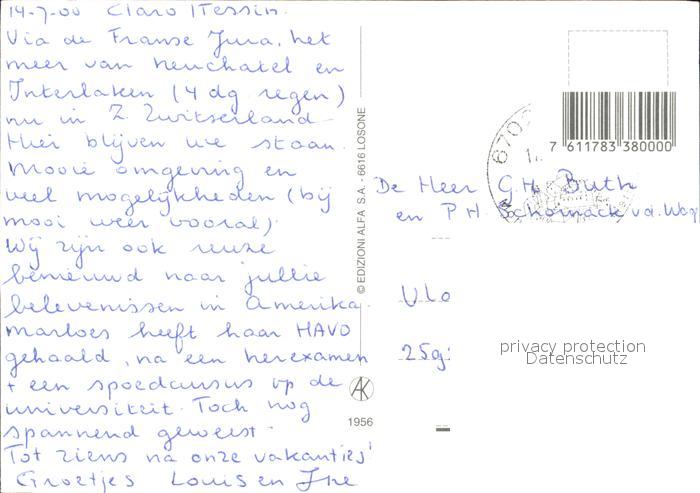 14-7-00 Claro /Tessin.
Via de Franse Jura, het
meer van Neuchatel en
Interlaken (4 dg regen)
nu in Z. Zwitserland.
Hier blijven we staan.
Mooie omgeving en
veel mogelijkheden (bij
mooi weer vooral).
Wij zijn ook reuze
benieuwd naar jullie
belevenissen in Amerika.
Marloes heeft haar HAVO
gehaald, na een herexamen
+ een spoedcursus op de
universiteit. Toch nog
spannend geweest.
Tot ziens na onze vakanties!
Groetjes Louis en
© EDIZIONI ALFA S.A. - 6616 LOSONE
AK
1956
6702
7 611783 380000
De Heer G.H. Buth
en P.H. Schornack v.d. Wop
Ulo
25g
privacy protection
Datenschutz